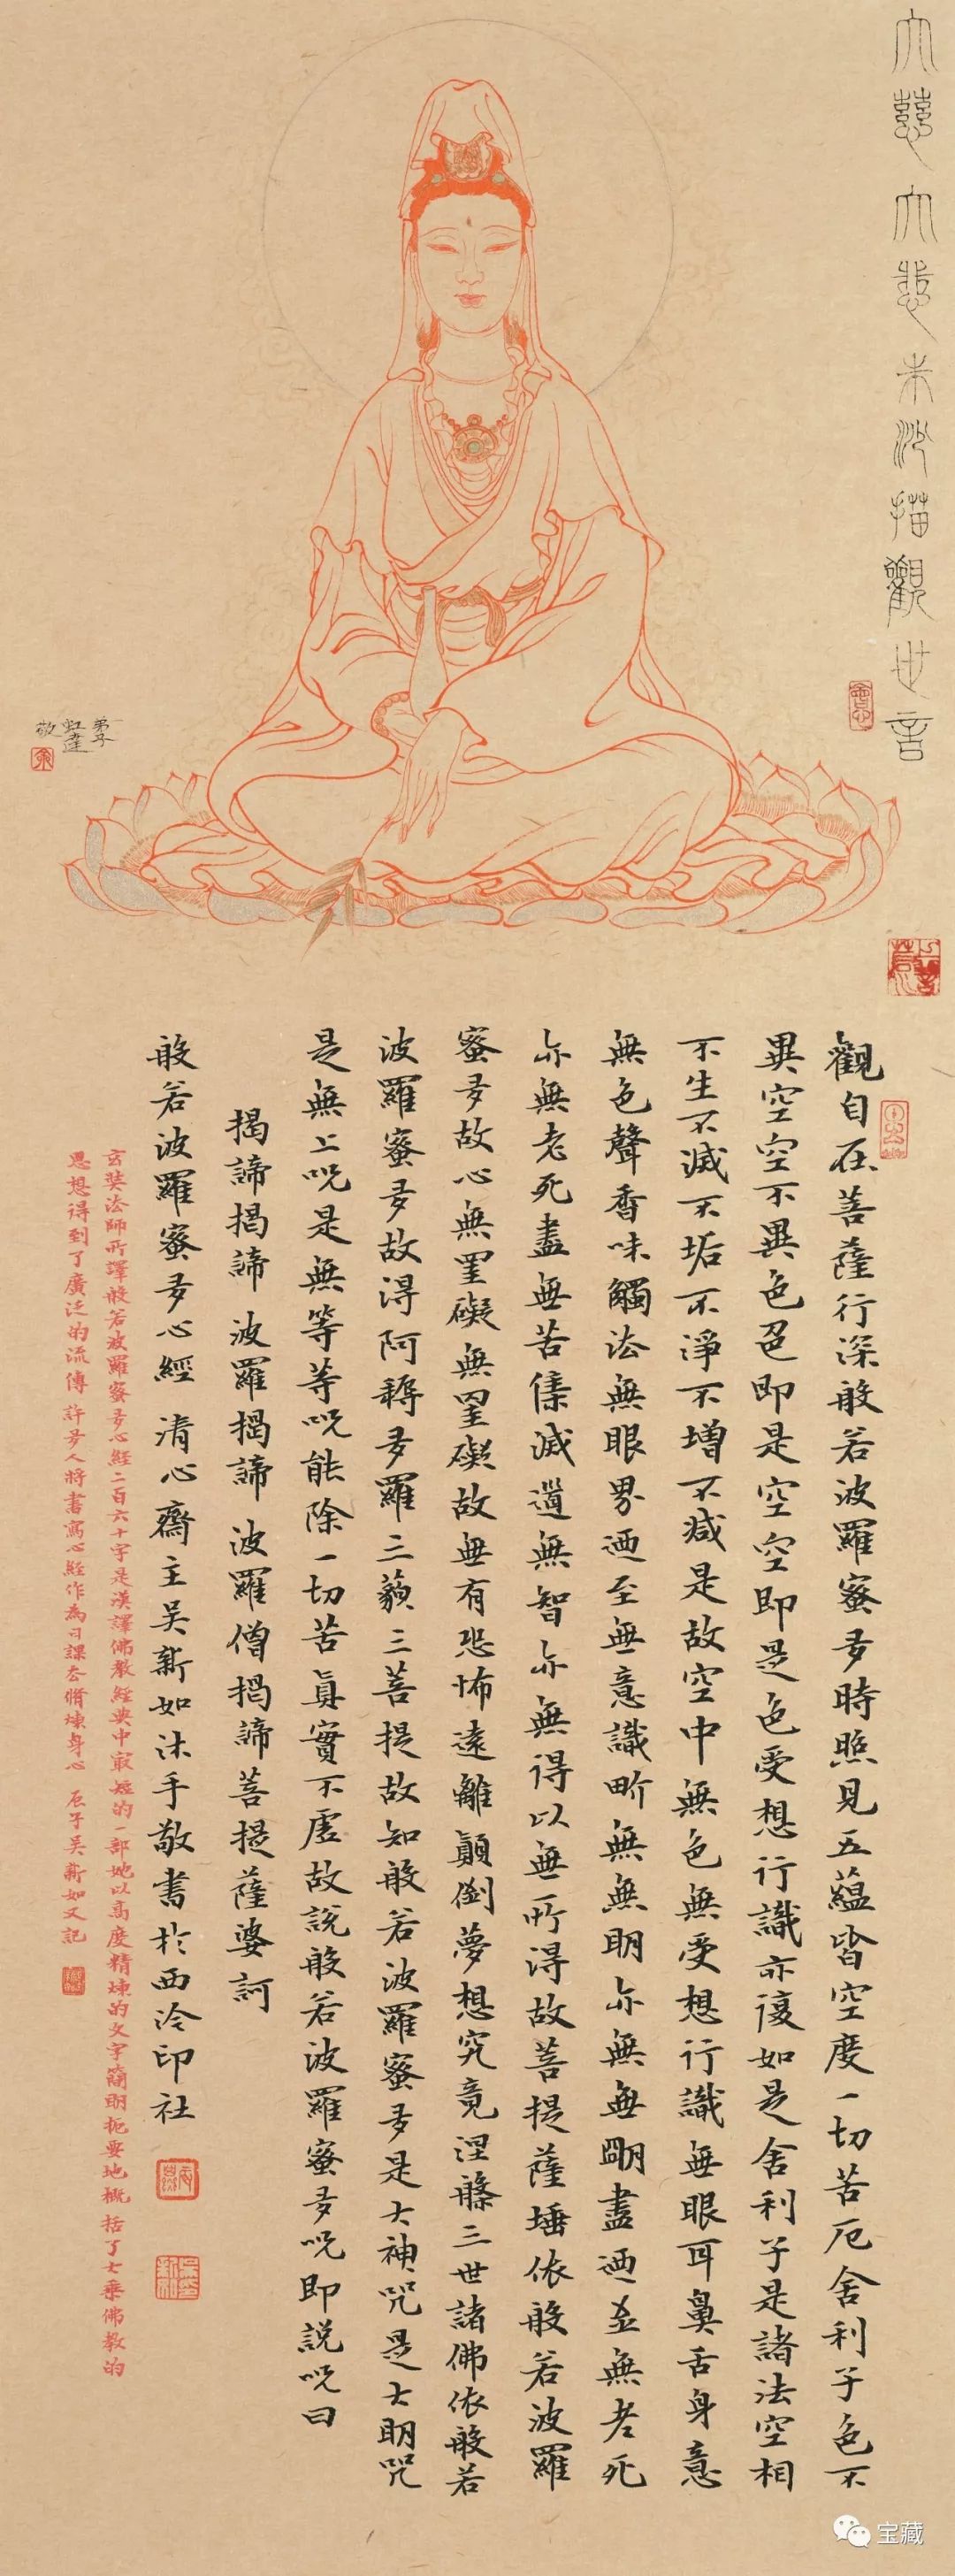 大慈大悲朱沙描觀世音
弟子
虹達
敬
觀自在菩薩行深般若波羅蜜多時照見五蘊皆空度一切苦厄舍利子色不
異空空不異色色即是空空即是色受想行識亦復如是舍利子是諸法空相
不生不滅不垢不淨不增不減是故空中無色無受想行識無眼耳鼻舌身意
無色聲香味觸法無眼界迺至無意識界無無明亦無無明盡迺至無老死
亦無老死盡無苦集滅道無智亦無得以無所得故菩提薩埵依般若波羅
蜜多故心無罣礙無罣礙故無有恐怖遠離顛倒夢想究竟涅槃三世諸佛依般若
波羅蜜多故得阿耨多羅三藐三菩提故知般若波羅蜜多是大神咒是大明咒
是無上呪是無等等呪能除一切苦真實不虛故說般若波羅蜜多呪即說呪曰
揭諦揭諦 波羅揭諦 波羅僧揭諦菩提薩婆訶
般若波羅蜜多心經 清心齋主吴新如沐手敬書於西泠印社
玄奘法師所譯般若波羅蜜多心經二百六十字是漢譯佛教經典中最短的一部她以高度精煉的文字簡明扼要地概括了大乘佛教的
思想得到了廣泛的流傳 許多人將書寫心經作為日課去脩煉身心 庚子吴新如又記
宝藏